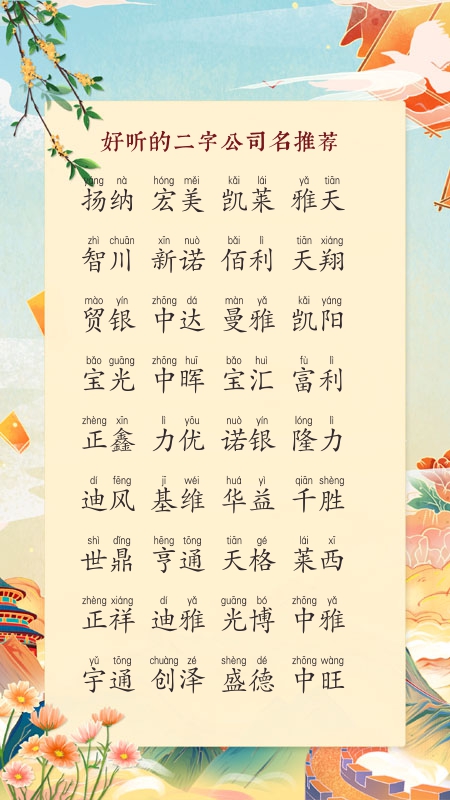 好听的二字公司名推荐
yáng nà hóng měi kǎi lái yǎ tiān
扬纳 宏美 凯莱 雅天
zhì chuān xīn nuò bǎi lì tiān xiáng
智川 新诺 佰利 天翔
mào yín zhōng dá màn yǎ kǎi yáng
贸银 中达 曼雅 凯阳
bǎo guāng zhōng huī bǎo huì fù lì
宝光 中晖 宝汇 富利
zhèng xīn lì yōu nuò yín lóng lì
正鑫 力优 诺银 隆力
dí fēng jī wéi huá yì qiān shèng
迪风 基维 华益 千胜
shì dǐng hēng tōng tiān gé lái xī
世鼎 亨通 天格 莱西
zhèng xiáng dí yǎ guāng bó zhōng yǎ
正祥 迪雅 光博 中雅
yǔ tōng chuàng zé shèng dé zhōng wàng
宇通 创泽 盛德 中旺